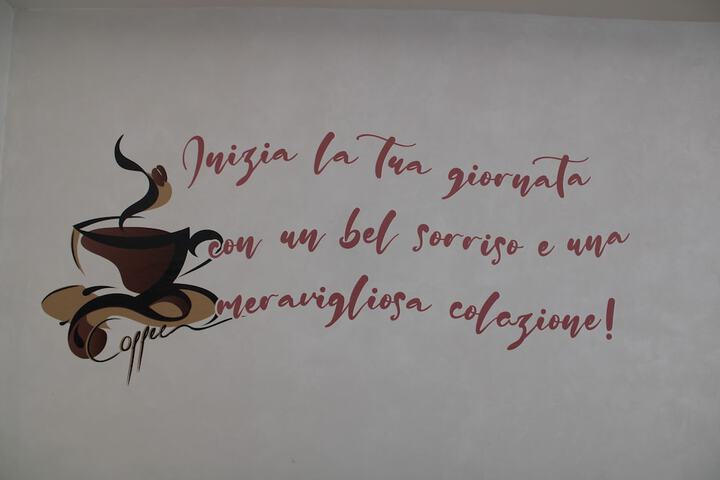 Inizia la Tua giornata
con un bel sorriso e una
meravigliosa colazione!
Coffee